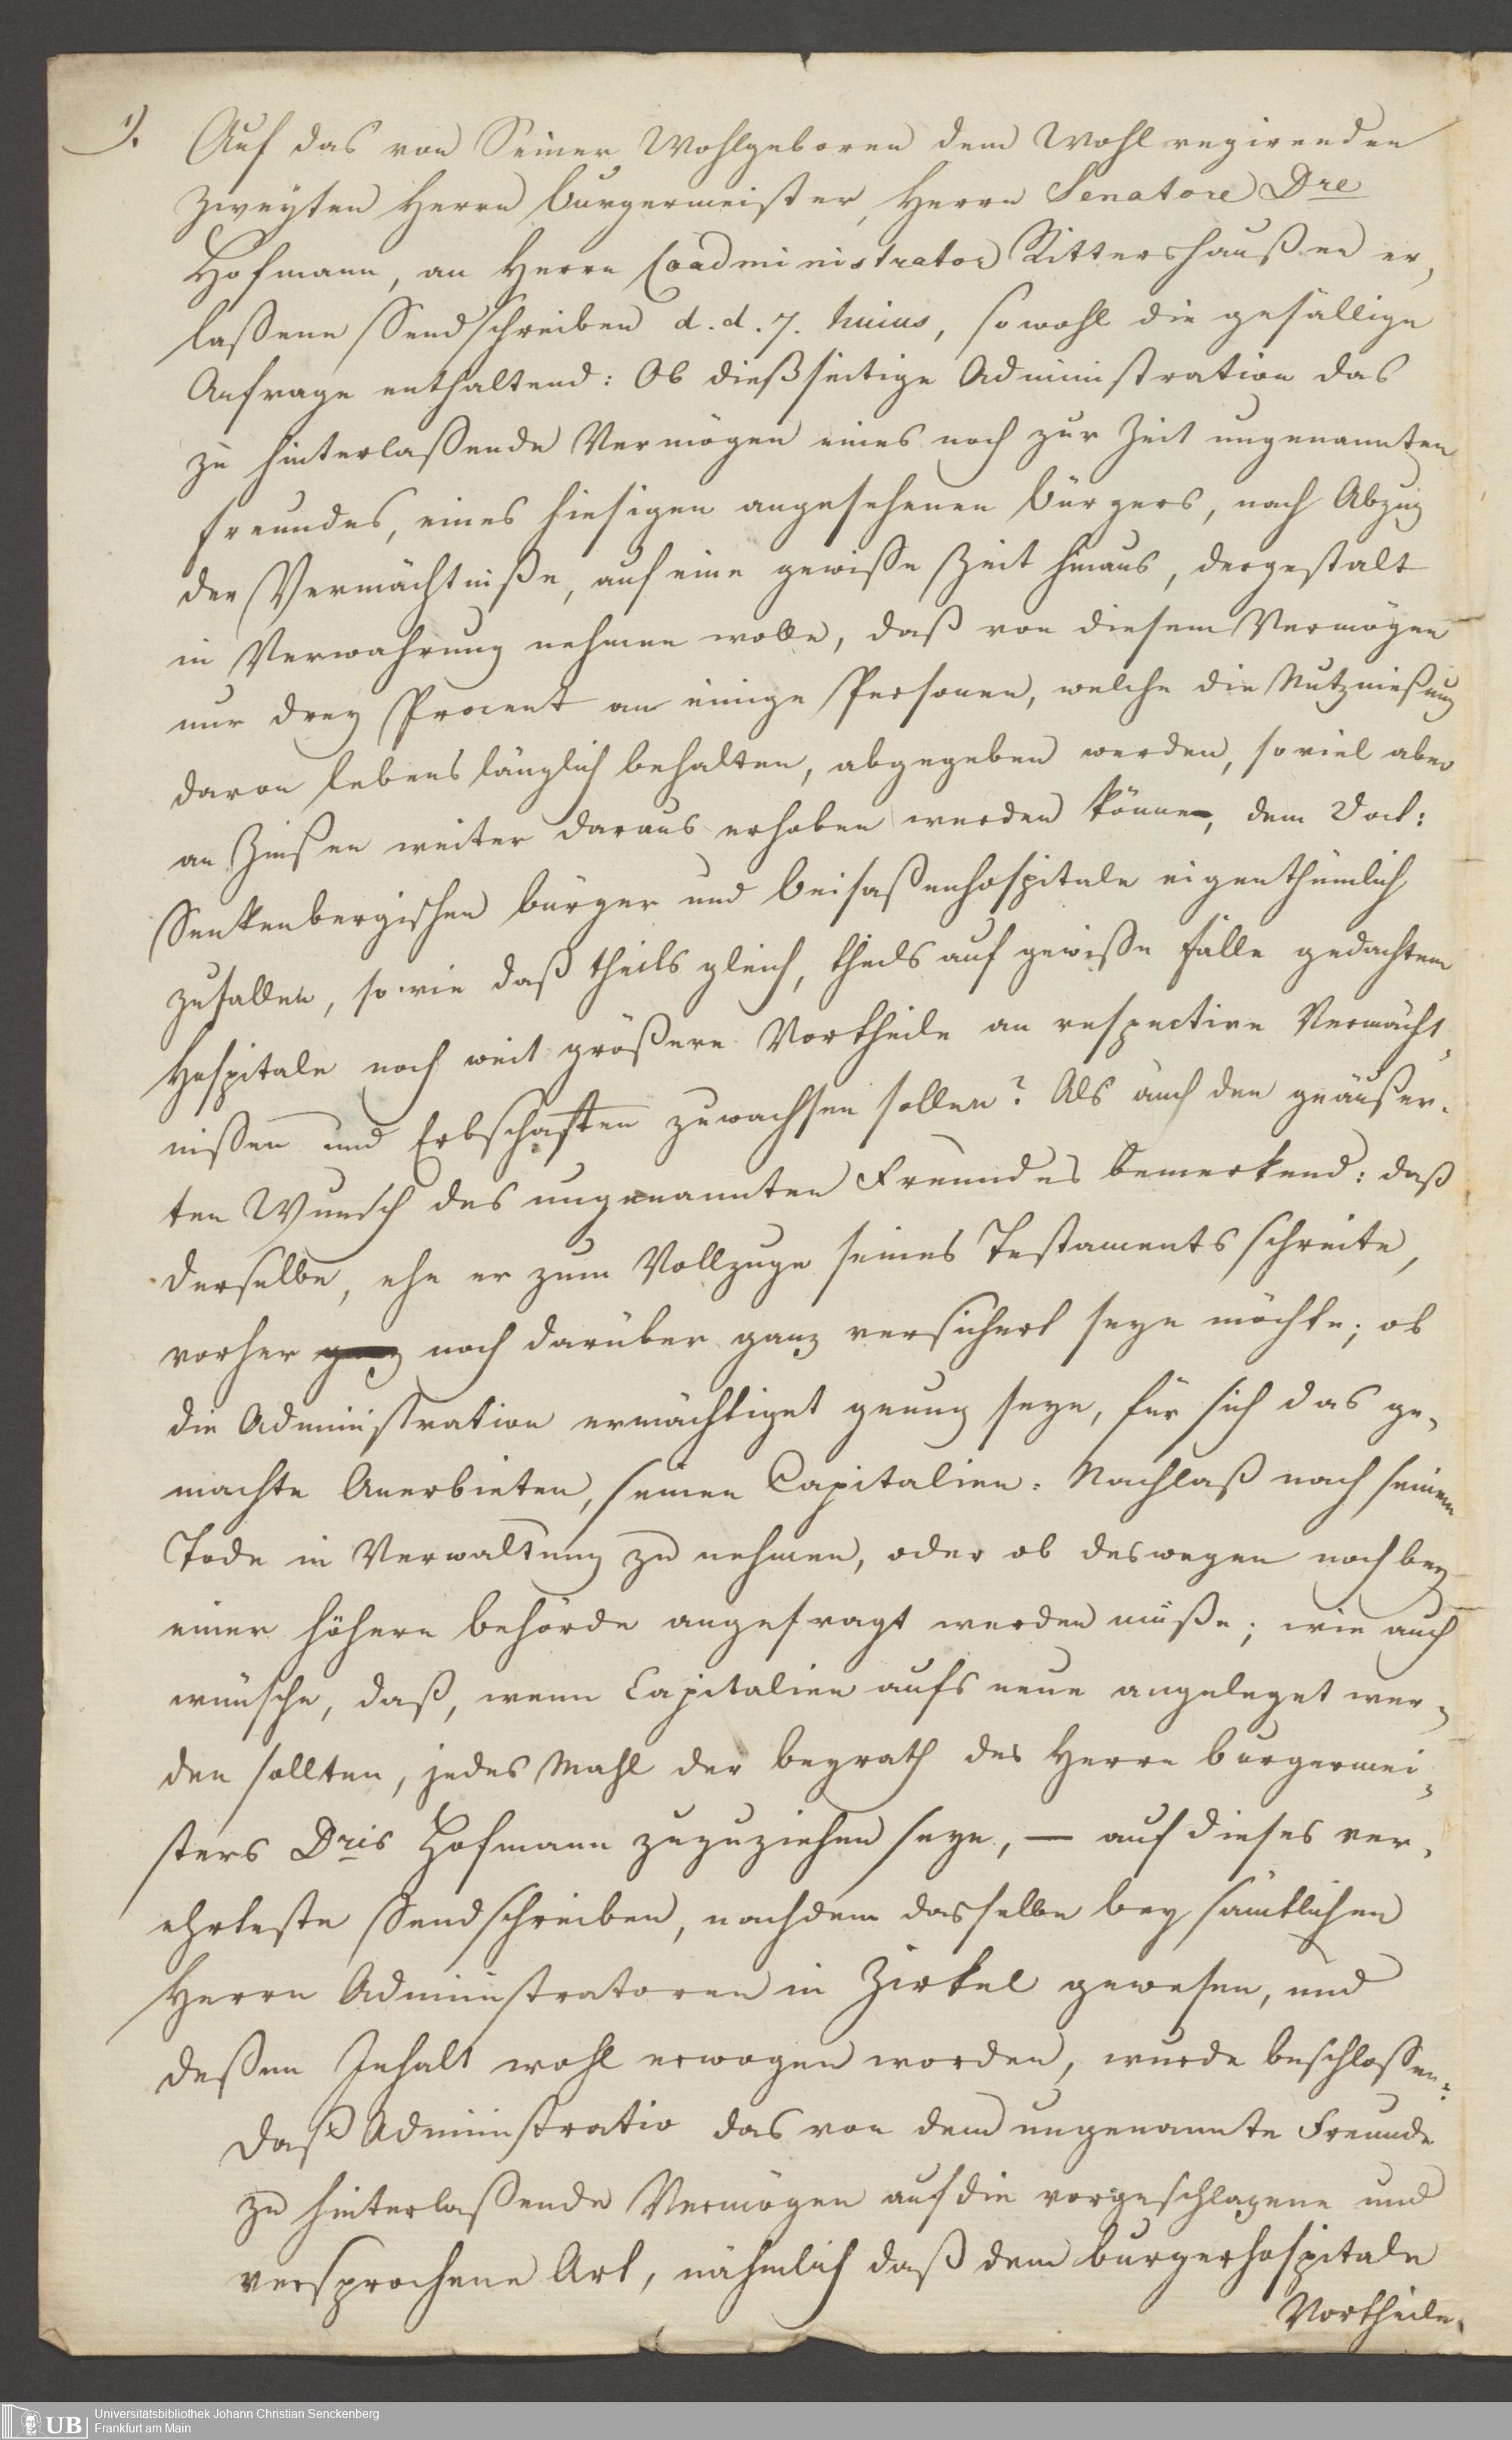 1). Auf das von Seiner Wohlgeboren dem Wohl regirenden
Zweyten Herrn Burgermeister, Herrn Senatore Dre
Hofmann, an Herrn Coadministrator Rittershaußen er-
laßene Sendschreiben d. d. 7. huius, sowohl die gefällige
Anfrage enthaltend: Ob dießseitige Administration das
zu hinterlaßende Vermögen eines noch zur Zeit ungenannten
Freundes, eines hiesigen angesehenen Bürgers, nach Abzug
der Vermächtniße, auf eine gewiße Zeit hinaus, dergestalt
in Verwahrung nehmen wolle, daß von diesem Vermögen
nur drey Procent an einige Personen, welche die Nutznießung
davon lebenslänglich behalten, abgegeben werden, soviel aber
an Zinßen weiter daraus erhoben werden könne, dem Doct:
Senkenbergischen Bürger und Beisaßenhospitale eigenthümlich
zufallen, so wie daß theils gleich, theils auf gewiße Fälle gedachtem
Hospitale noch weit größere Vortheile an respective Vermächt-
nißen und Erbschaften zuwachsen sollen? Als auch den geäußer-
ten Wunsch des ungenannten Freundes bemerkend: daß
derselbe, ehe er zum Vollzuge seines Testaments schreite,
vorher noch darüber ganz versichert seye möchte; ob
die Administration ermächtiget genug seye, für sich das ge-
machte Anerbieten, seinen Capitalien-Nachlaß nach seinem
Tode in Verwaltung zu nehmen, oder ob deswegen noch bey
einer höhern Behörde angefragt werden müße; wie auch
wünsche, daß, wenn Capitalien aufs neue angeleget wer-
den sollten, jedes Mahl der Beyrath des Herrn Burgermei-
sters Dris Hofmann zuzuziehen seye, — auf dieses ver-
ehrteste Sendschreiben, nachdem dasselbe bey sämtlichen
Herrn Administratoren in Zirkel gewesen, und
deßen Inhalt wohl erwogen worden, wurde beschloßen:
Daß Administratio das von dem ungenannte Freunde
zu hinterlaßende Vermögen auf die vorgeschlagene und
versprochene Art, nähmlich daß dem Burgerhospitale
Vortheile
UB Universitätsbibliothek Johann Christian Senckenberg
Frankfurt am Main